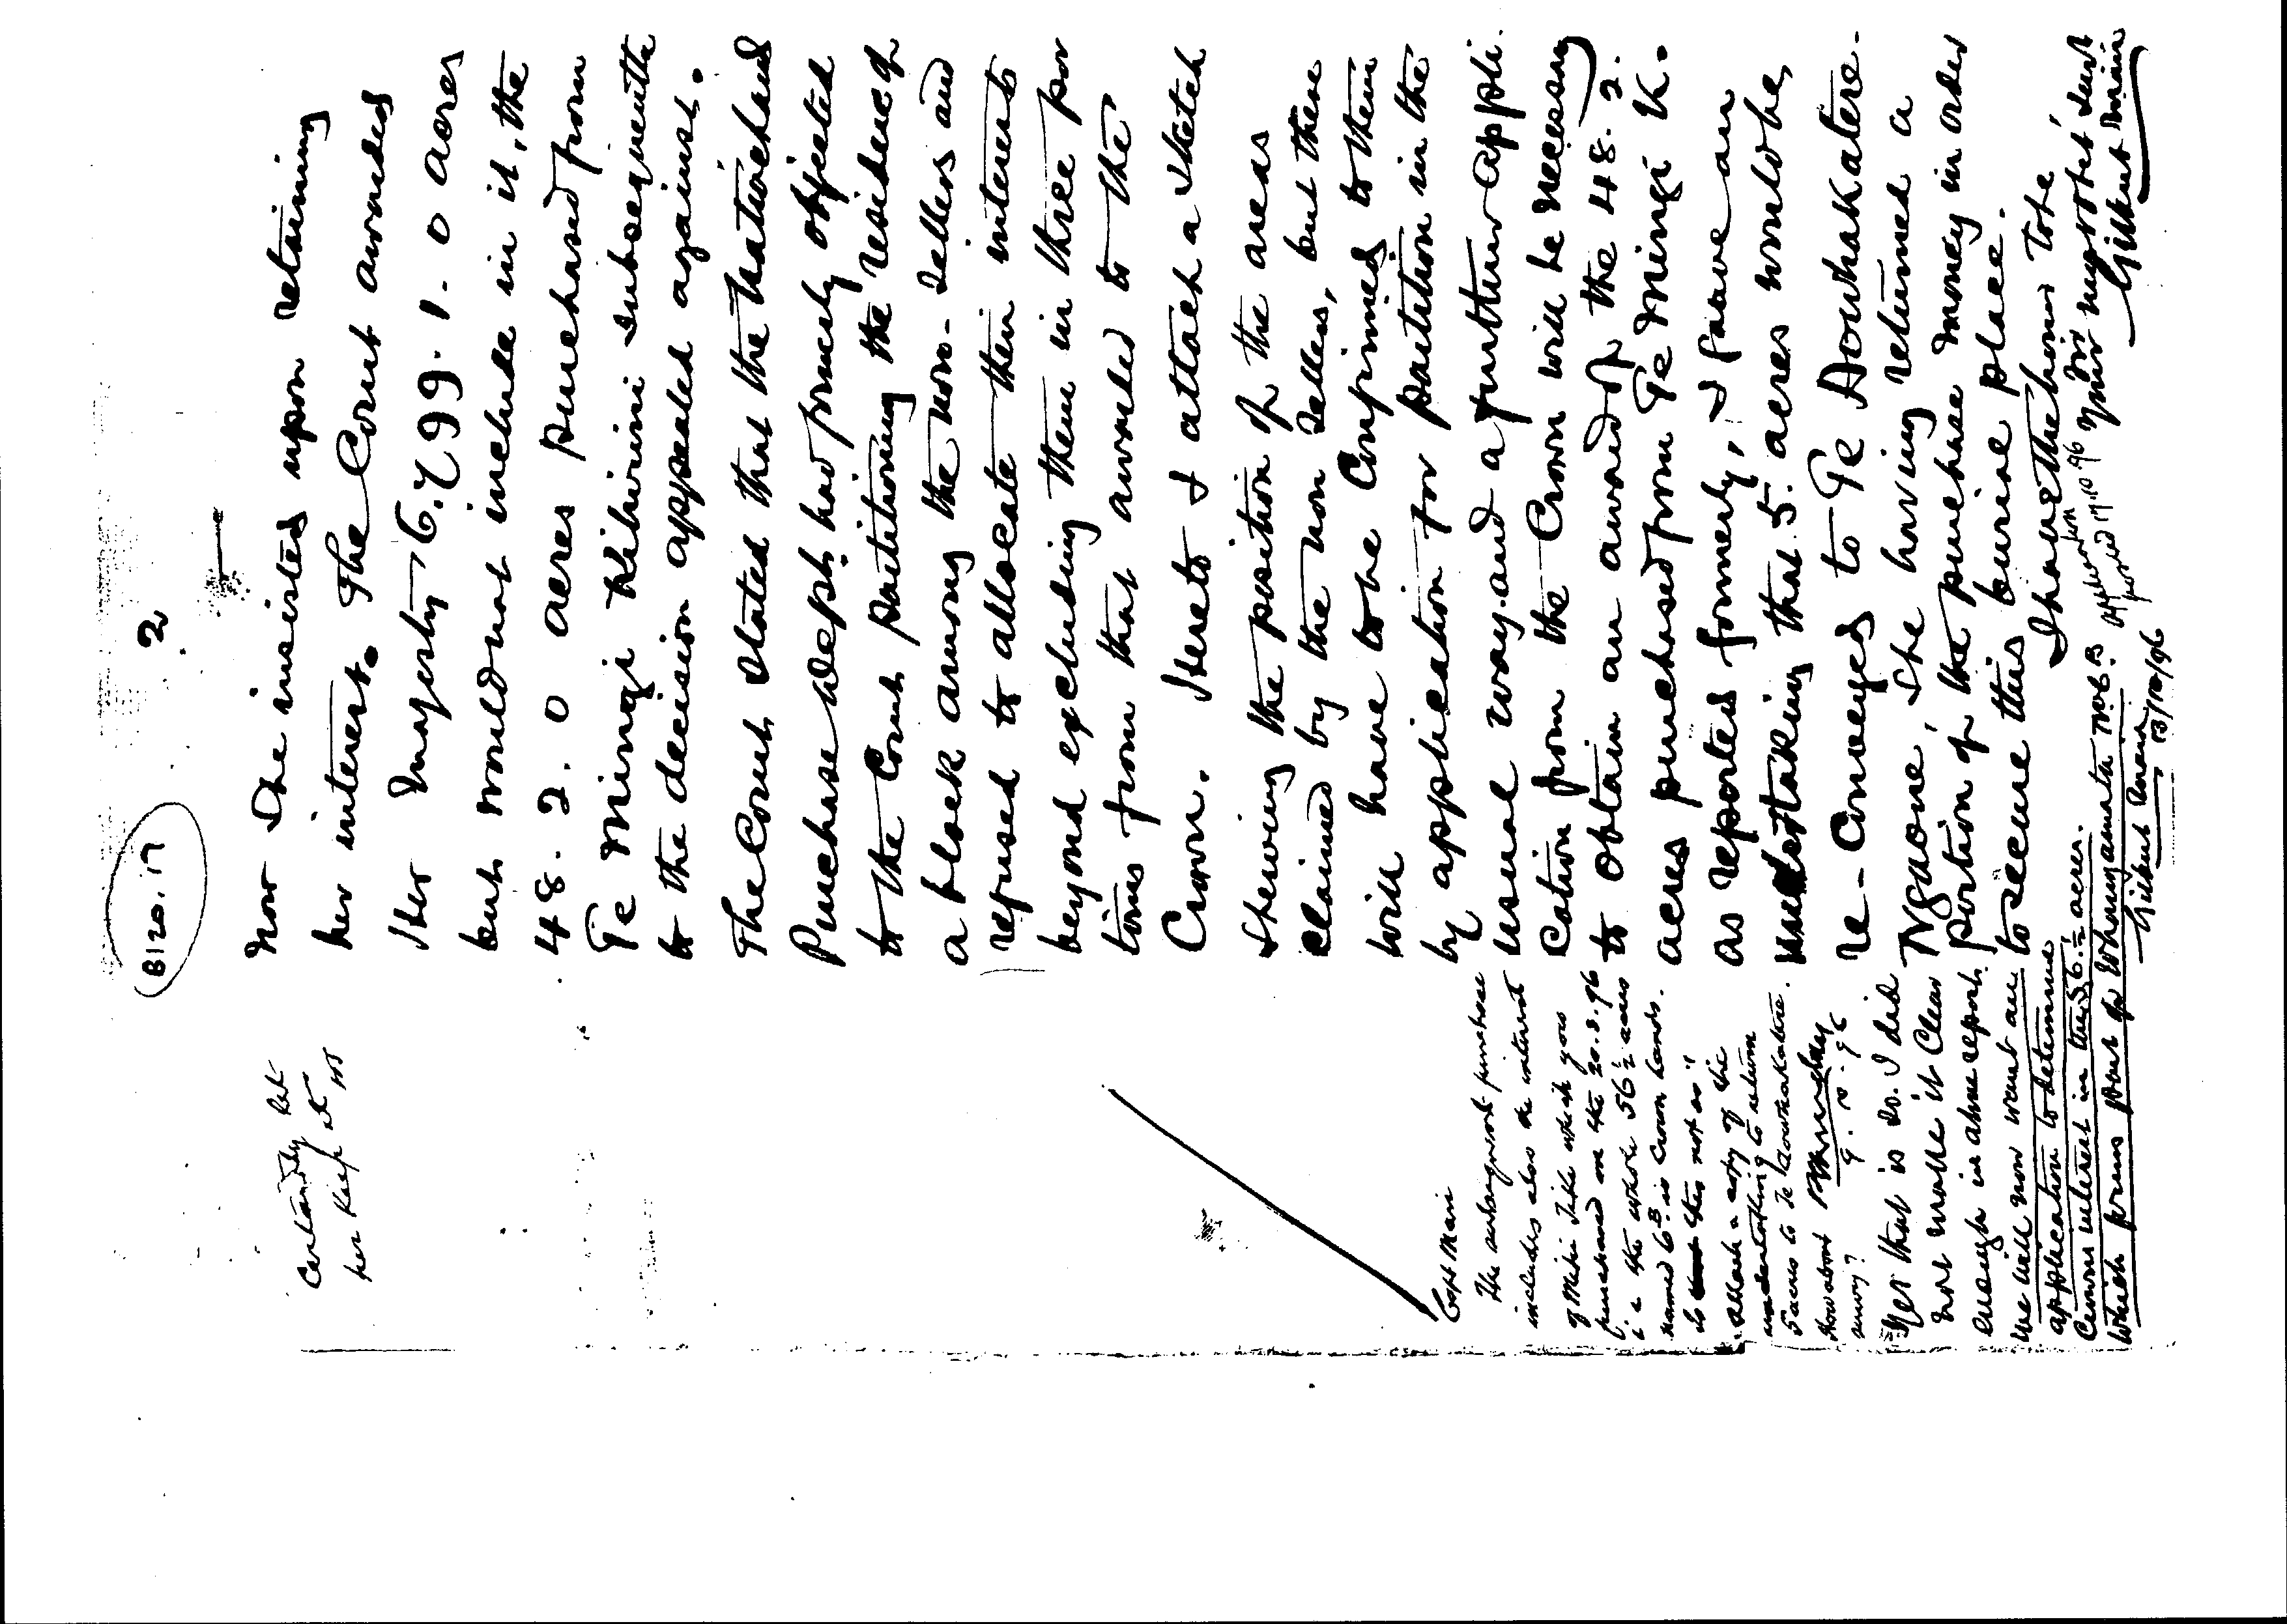 B120.17
2
now she insisted upon retaining
her interest. The Court awarded
Her Majesty 6.799.1.0 acres
but would not include in it, the
48.2.0 acres purchased from
Te Mingi Kihirini subsequently
to the decision appealed against.
The Court stated that the Native Land
Purchase Dept. had formerly objected
to the Court partitioning the residue of
a block among the non-sellers and
refused to allocate their interests
beyond excluding them in three por
tions from that awarded to the
Crown. Hereto I attach a sketch
shewing the position of the areas
claimed by the non sellers, but these
will have to be confirmed to them
by application for partition in the
usual way and a further appli-
cation from the Crown will be necessary
to obtain an award of the 48.2.
acres purchased from Te Mingi K.
as reported formerly, I gave an
undertaking that 5. acres would be
re-conveyed to Te Aouhakatere-
Ngaone, she having returned a
portion of the purchase money in order
to secure this burial place.
I have the honor to be,
Sir
Your most obt servt
Gilbert Mair
Certainly let
her keep it
Capt Mair
The subsequent purchase
includes also the interest
of Mehi Tiki which you
purchased on the 20.8.96
i.e the whole 56½ acres
named 6B is Crown lands.
Is this not so?
Attach a copy of the
undertaking to return
5 acres to Te Aouhakatere.
How about
survey?
9.10.96
Yes that is so. I did
not make it clear
enough in above report.
We will now want an
application to determine
Crown interest in this 56½ acres.
which forms part of Whangamata No 6.B
Gilbert Mair
13/10/96
Application
forwd 17.10.96